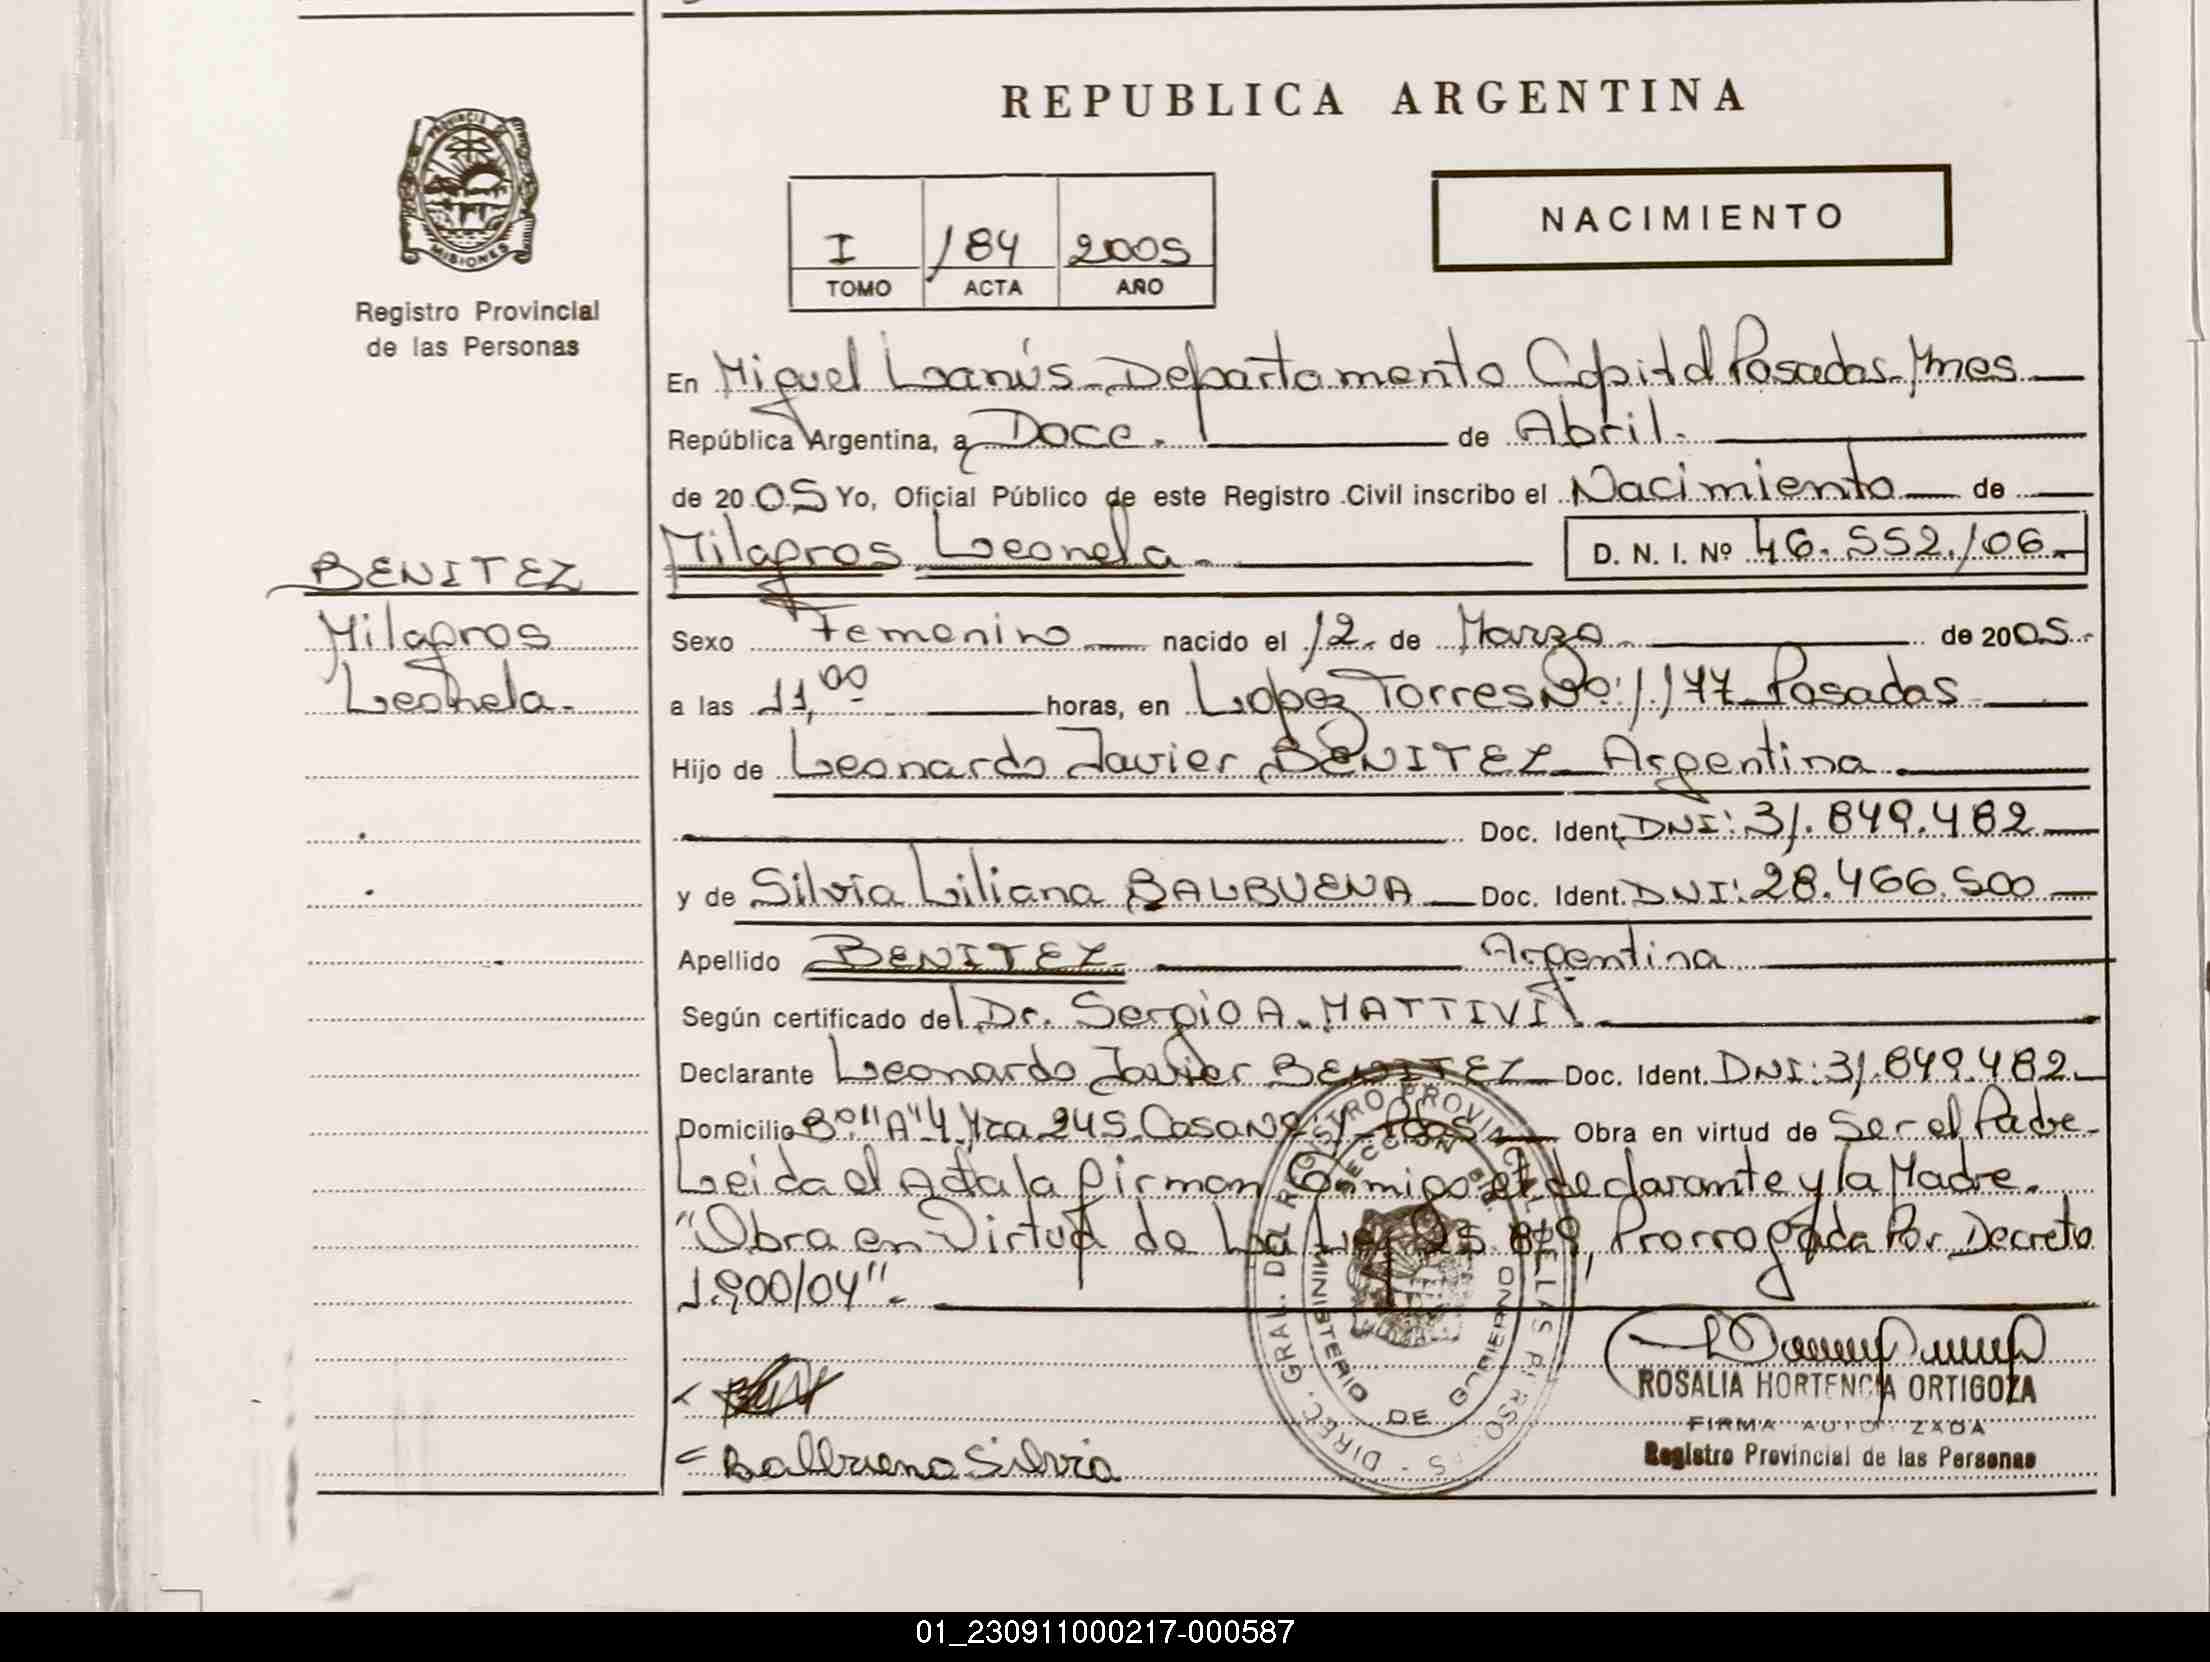 REPUBLICA ARGENTINA
PROVINCIA DE
MISIONES
Registro Provincial
de las Personas
I 184 2005
TOMO ACTA AÑO
NACIMIENTO
En Miguel Lanús - Departamento Capital Posadas - Mnes
República Argentina, a Doce. de Abril.
de 2005 Yo, Oficial Público de este Registro Civil inscribo el Nacimiento de
Milagros Leonela. D. N. I. Nº 46.552.106
BENITEZ
Milagros
Leonela.
Sexo Femenino nacido el 12 de Marzo de 2005
a las 11,00 horas, en Lopez Torres Nº: 1.177 Posadas
Hijo de Leonardo Javier BENITEZ Argentina
Doc. Ident. DNI: 31.849.482
y de Silvia Liliana BALBUENA Doc. Ident. DNI: 28.466.500
Apellido BENITEZ Argentina
Según certificado del Dr. Sergio A. MATTIVI.
Declarante Leonardo Javier BENITEZ Doc. Ident. DNI: 31.849.482
Domicilio Bº "A" 4 Mza 245 Casa Nº Pdas Obra en virtud de Ser el Padre
Leida el Acta la firman Conmigo el declarante y la Madre.
"Obra en Virtud de La Ley 25.819, Prorrogada Por Decreto
1.900/04".
DIREC. GRAL. DEL REGISTRO PROVINCIAL DE LAS PERSONAS
MINISTERIO DE GOBIERNO
ROSALIA HORTENCIA ORTIGOZA
FIRMA AUTORIZADA
Registro Provincial de las Personas
Balbuena Silvia
01_230911000217-000587